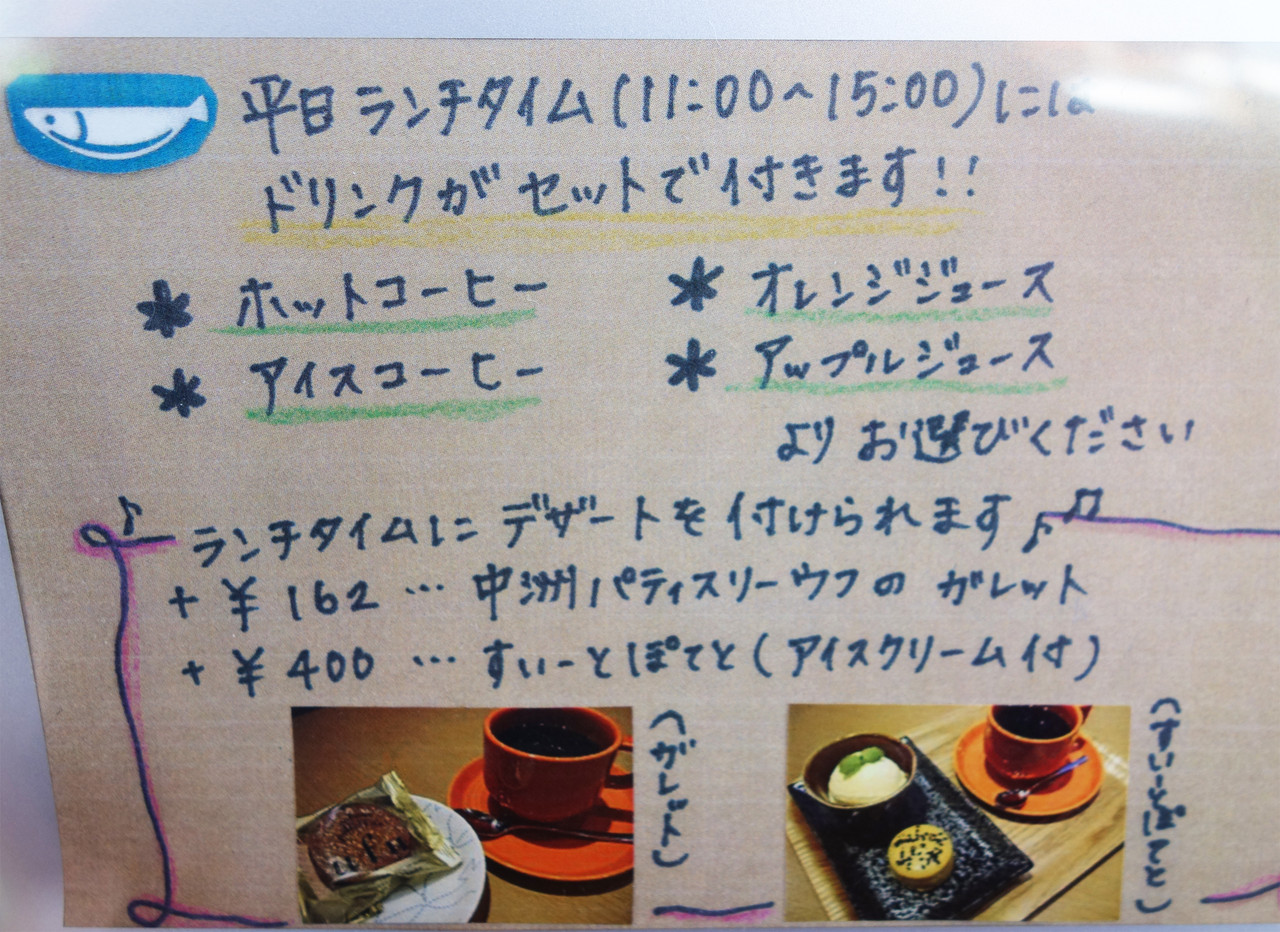 平日ランチタイム(11:00~15:00)には
ドリンクがセットで付きます!!
* ホットコーヒー
* アイスコーヒー
* オレンジジュース
* アップルジュース
よりお選びください
ランチタイムにデザートを付けられます
+ ¥162 … 中洲パティスリーウフのガレット
+ ¥400 … すいーとぽてと(アイスクリーム付)
(ガレット)
ufu
(すいーとぽてと)